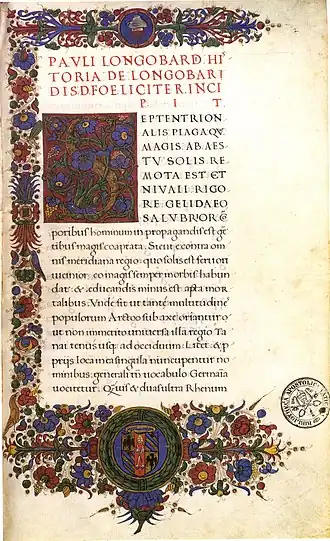 PAVLI LONGOBARD. HI
TORIA DE LONGOBARI
DISD FOELICITER INCI
P I T
SEPTENTRION
ALIS PLAGA QV
MAGIS AB AES
TV SOLIS RE
MOTA EST ET
NIVALI RIGO
RE GELIDA EO
SALVBRIOR
poribus hominum in propagandis est ge
tibus magis coaptata. Sicut e contra om
nis meridiana regio quo solis est feruori
uicinior eo magis semper morbis habun
dat: & educandis minus est apta mor
talibus. Vnde fit ut tantę multitudinę
populorum Arctoo sub axe oriantur: o
ut non immerito uniuersa illa regio Ta
nai tenus usq; ad occiduum. Licet & p
prijs loca in ea singula nuncupentur no
minibus: generali tn uocabulo Germaīa
uocitetur. Quis & duas ultra Rhenum